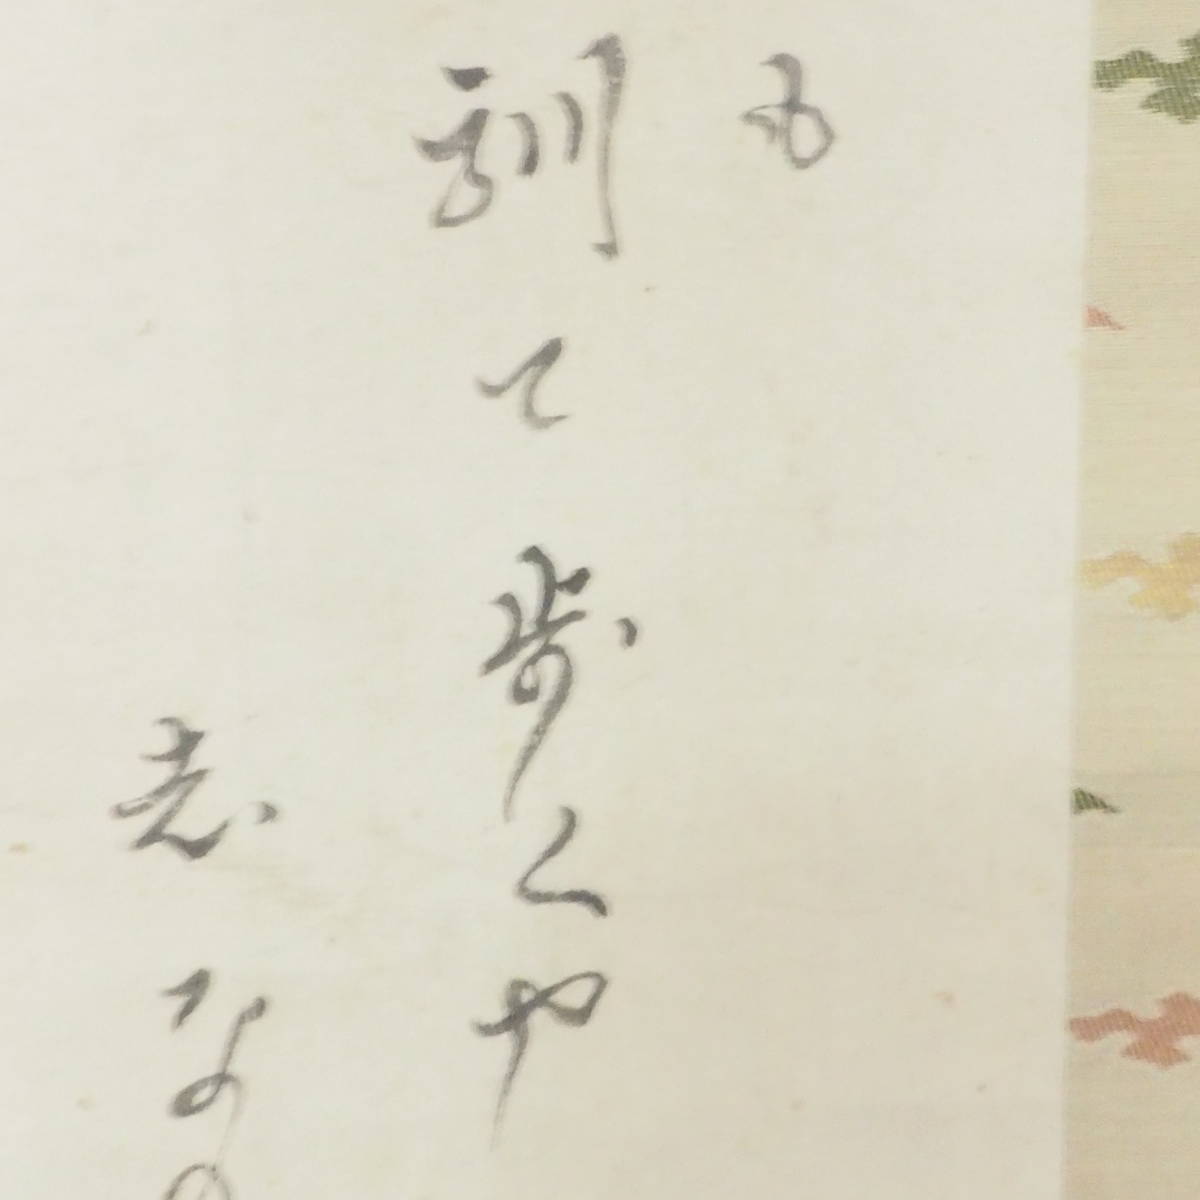 も
訓て歩くや
志なの